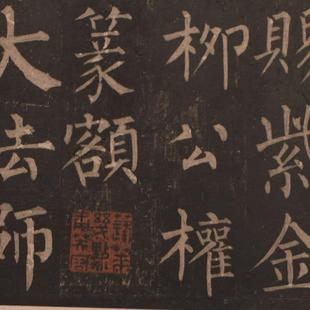 賜紫金
柳公權
篆額
大法師